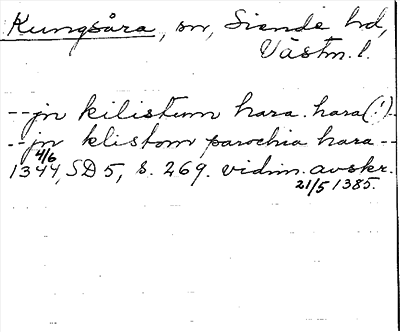 Kungsåra, sn, Siende hd,
Västm. l.
-- jn kilistum hara. hara (!) -
-- jn klistom parochia hara --
4/6
1344, SD 5, s. 269. vidim. avskr.
21/5 1385.